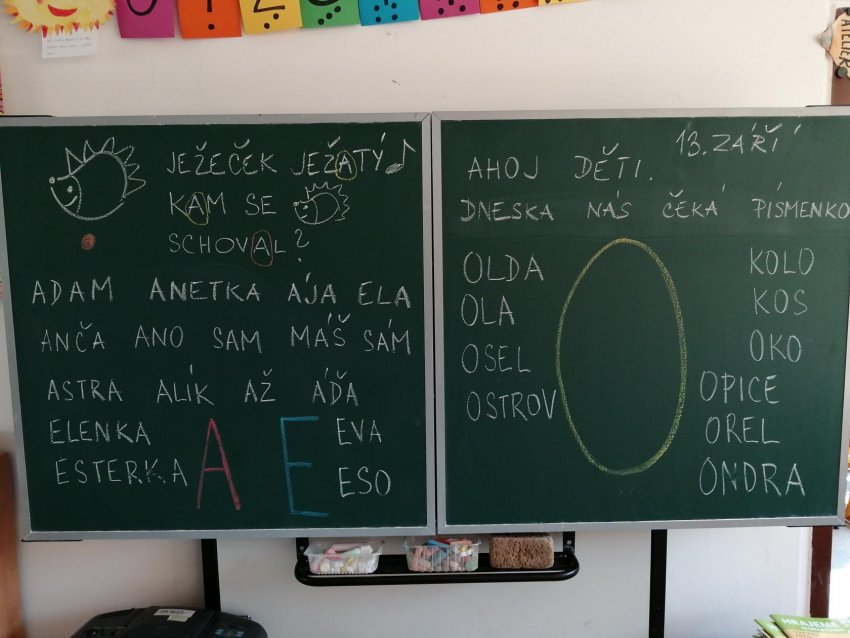 JEŽEČEK JEŽATÝ
KAM SE
SCHOVAL?
ADAM ANETKA ÁJA ELA
ANČA ANO SAM MÁŠ SÁM
ASTRA ALÍK AŽ ÁĎA
ELENKA A E EVA
ESTERKA ESO
AHOJ DĚTI. 13. ZÁŘÍ
DNESKA NÁS ČEKÁ PÍSMENKO
O
OLDA KOLO
OLA KOS
OSEL OKO
OSTROV OPICE
OREL
ONDRA
ATELIÉR
HRAJEME S